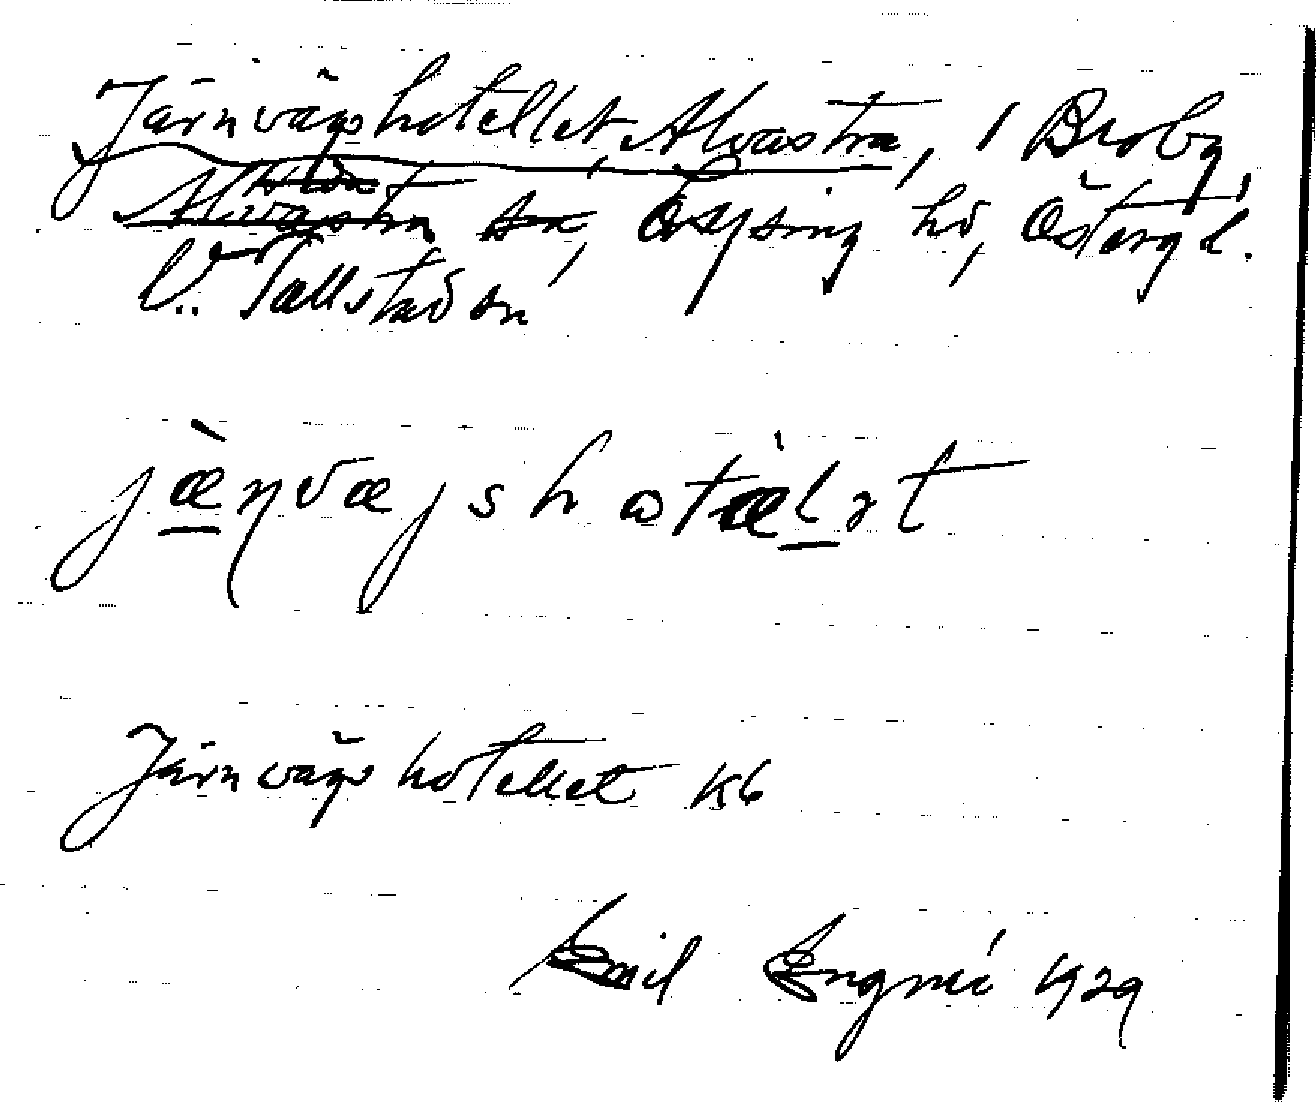 Järnvägshotellet, Alvastra, i Broby,
Alvastra sn, Lysing hd, Östergl.
V. Tollstad sn
jæ̀ɳvæjshotæ̀lət
Järnvägshotellet Kb
Emil Engné 1929